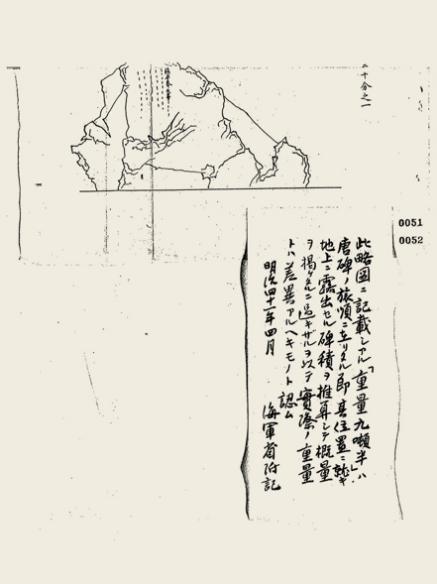 二十分之一
0051
0052
此略圖ニ記載シアル「重量九噸半」ハ
唐碑ノ旅順ニ在リタル即其位置ニ就キ
地上ニ露出セル碑積ヲ推算シテ概量
ヲ掲ケタルニ過キザルヲ以テ實際ノ重量
トハ差異アルヘキモノト認ム
明治四十一年四月
海軍省附記